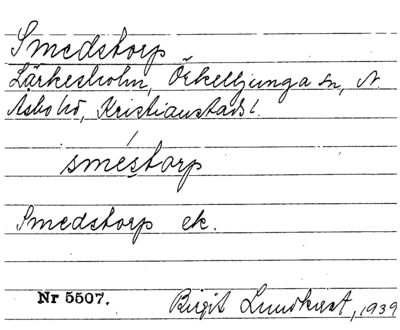 Smedstorp
Lärkesholm, Örkelljunga sn, N.
Åsbo hd, Kristianstads l.
sméstorp
Smedstorp ek.
Nr 5507. Birgit Lundkvist, 1939